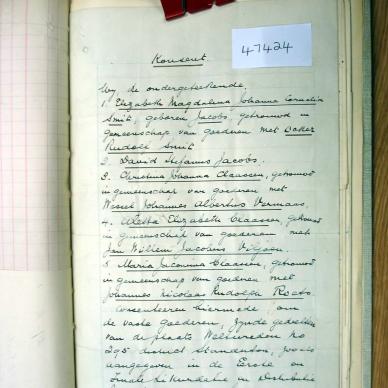 47424
Konsent
Wy, de ondergeteekende,
1. Elizabeth Magdalena Johanna Cornelia
Smit, geboren Jacobs, getrouwd in
gemeenschap van goederen met
Rudolf Smit
2. David Stefanus Jacobs.
3. Christina Johanna Claassen, getrouwd
in gemeenschap van goederen met
Wessel Johannes Albertus Vermaas
4. Aletta Elizabeth Claassen, getrouwd
in gemeenschap van goederen met
Jan Willem Jacobus Viljoen.
5. Maria Jacomina Claassen, getrouwd
in gemeenschap van goederen met
Johannes Nicolaas Rudolph Roets.
consenteeren hiermede om
de vaste goederen, zynde gedeelten
van de plaats Weltevreden No
295 district Standerton, zooals
aangegeven in de Eerste en
Finale Likwidatie en Distributie